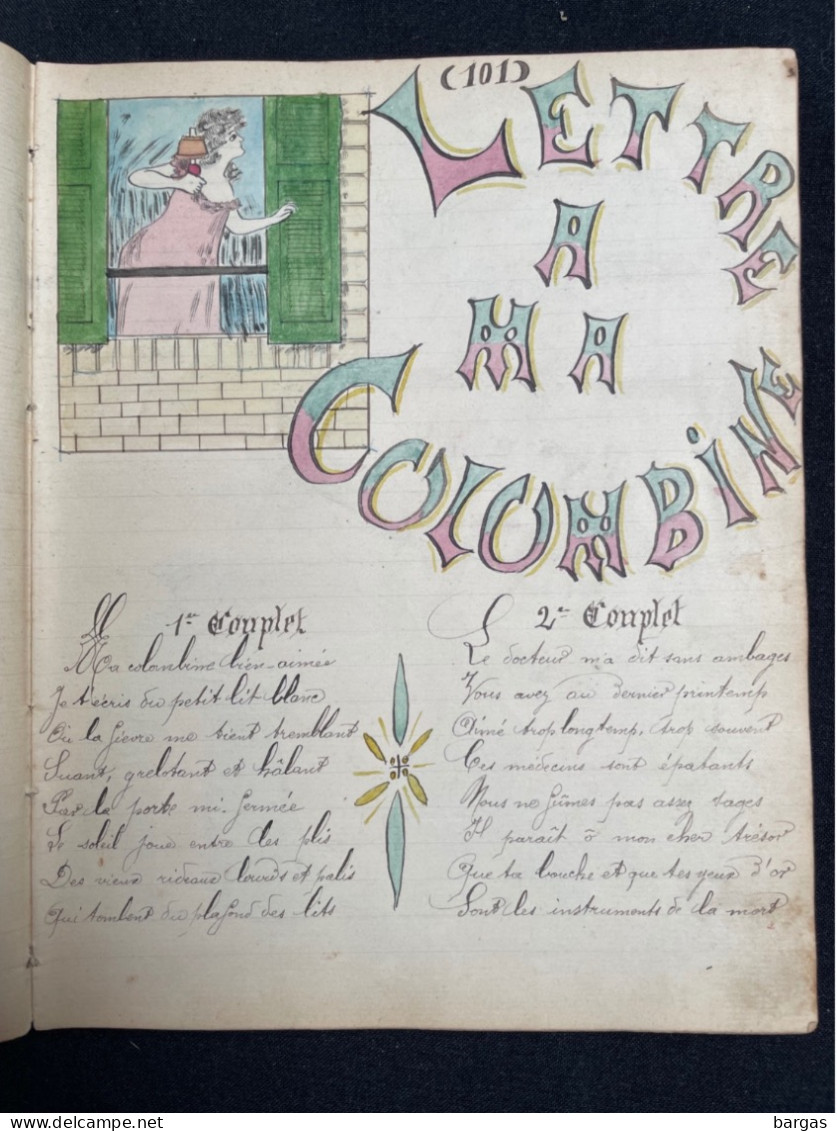 (101)
LETTRE
A
MA
COLOMBINE
1er Couplet
Ma colombine bien-aimée
Je t'écris du petit lit blanc
Où la fièvre me tient tremblant
Suant, grelotant et hâlant
Par la porte mi-fermée
Le soleil joue entre les plis
Des vieux rideaux lourds et palis
Qui tombent du plafond des lits
2e Couplet
Le docteur m'a dit sans ambages
Vous avez au dernier printemp
Aimé trop longtemp, trop souvent
Ces médecins sont épatants
Nous ne fûmes pas assez sages
Il paraît ô mon cher trésor
Que ta bouche et que tes yeux d'or
Sont les instruments de la mort
bargas